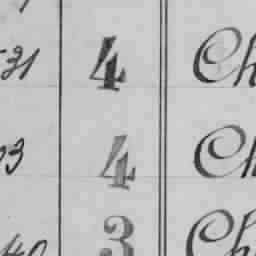 531 4 Ch
03 4 Ch
40 3 Ch